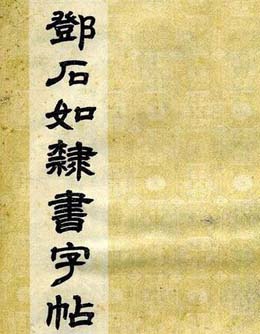 鄧石如隸書字帖